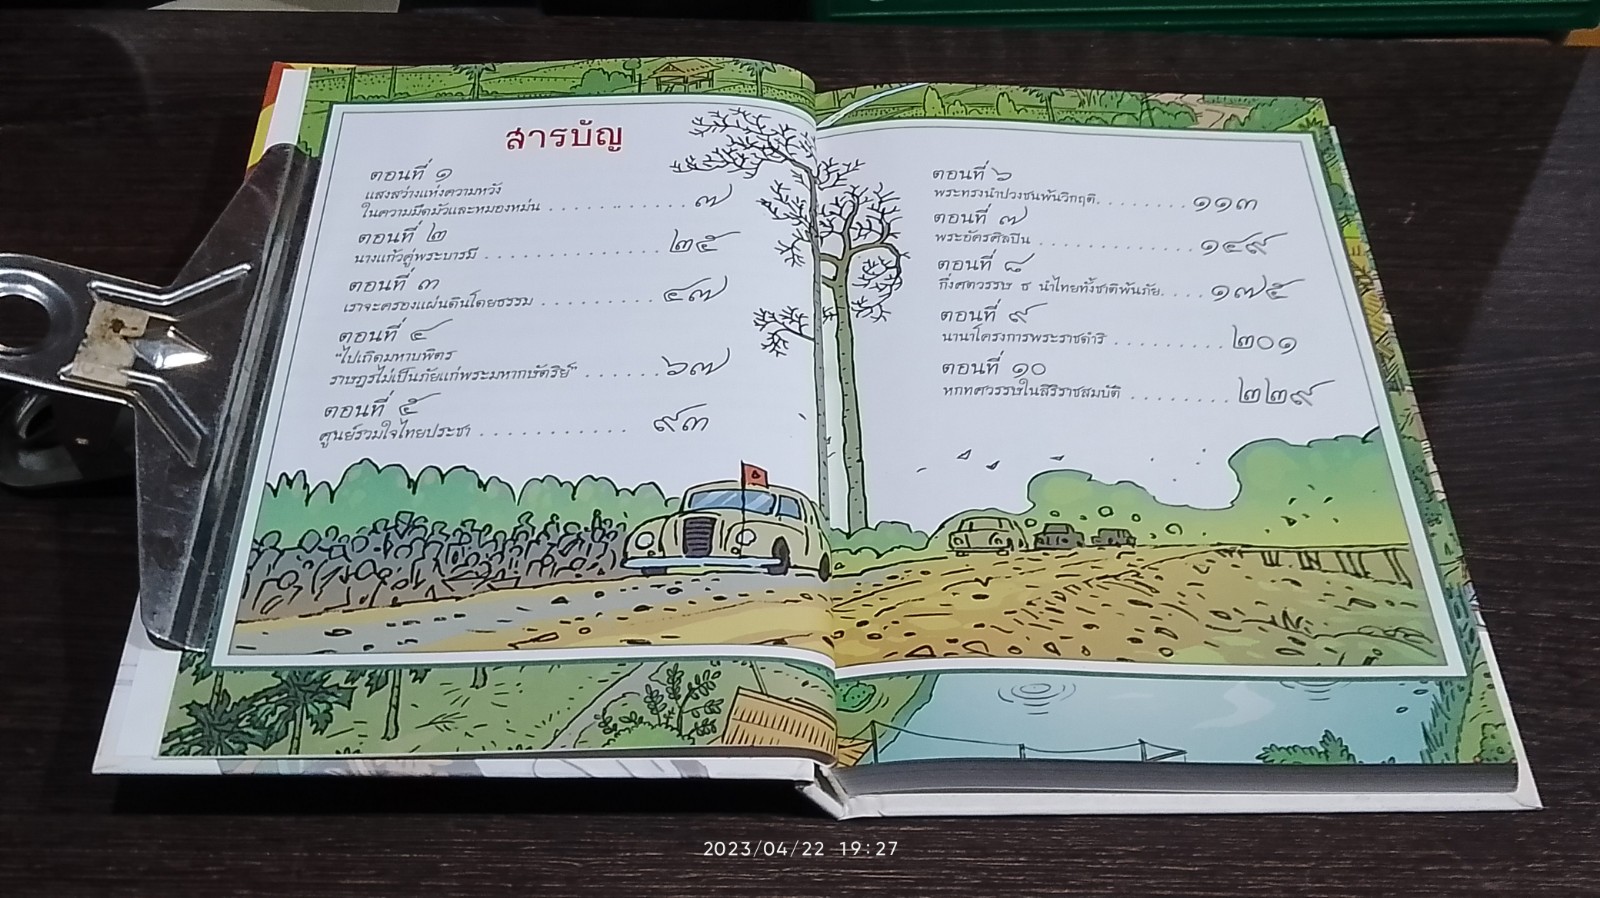 สารบัญ
ตอนที่ ๑
แสงสว่างแห่งความหวัง
ในความมืดมัวและหมองหม่น ................ ๗
ตอนที่ ๒
นางแก้วคู่พระบารมี ................ ๒๕
ตอนที่ ๓
เราจะครองแผ่นดินโดยธรรม ............ ๔๗
ตอนที่ ๔
"ไปเกิดมหาบพิตร
ราษฎรไม่เป็นภัยแก่พระมหากษัตริย์" ....... ๖๗
ตอนที่ ๕
ศูนย์รวมใจไทยประชา ............ ๙๓
ตอนที่ ๖
พระทรงนำปวงชนพ้นวิกฤติ......... ๑๑๓
ตอนที่ ๗
พระอัครศิลปิน ................ ๑๔๙
ตอนที่ ๘
กึ่งศตวรรษ ธ นำไทยทั้งชาติพ้นภัย..... ๑๗๕
ตอนที่ ๙
นานาโครงการพระราชดำริ .......... ๒๐๑
ตอนที่ ๑๐
หกทศวรรษในสิริราชสมบัติ ......... ๒๒๙
2023/04/22 19:27